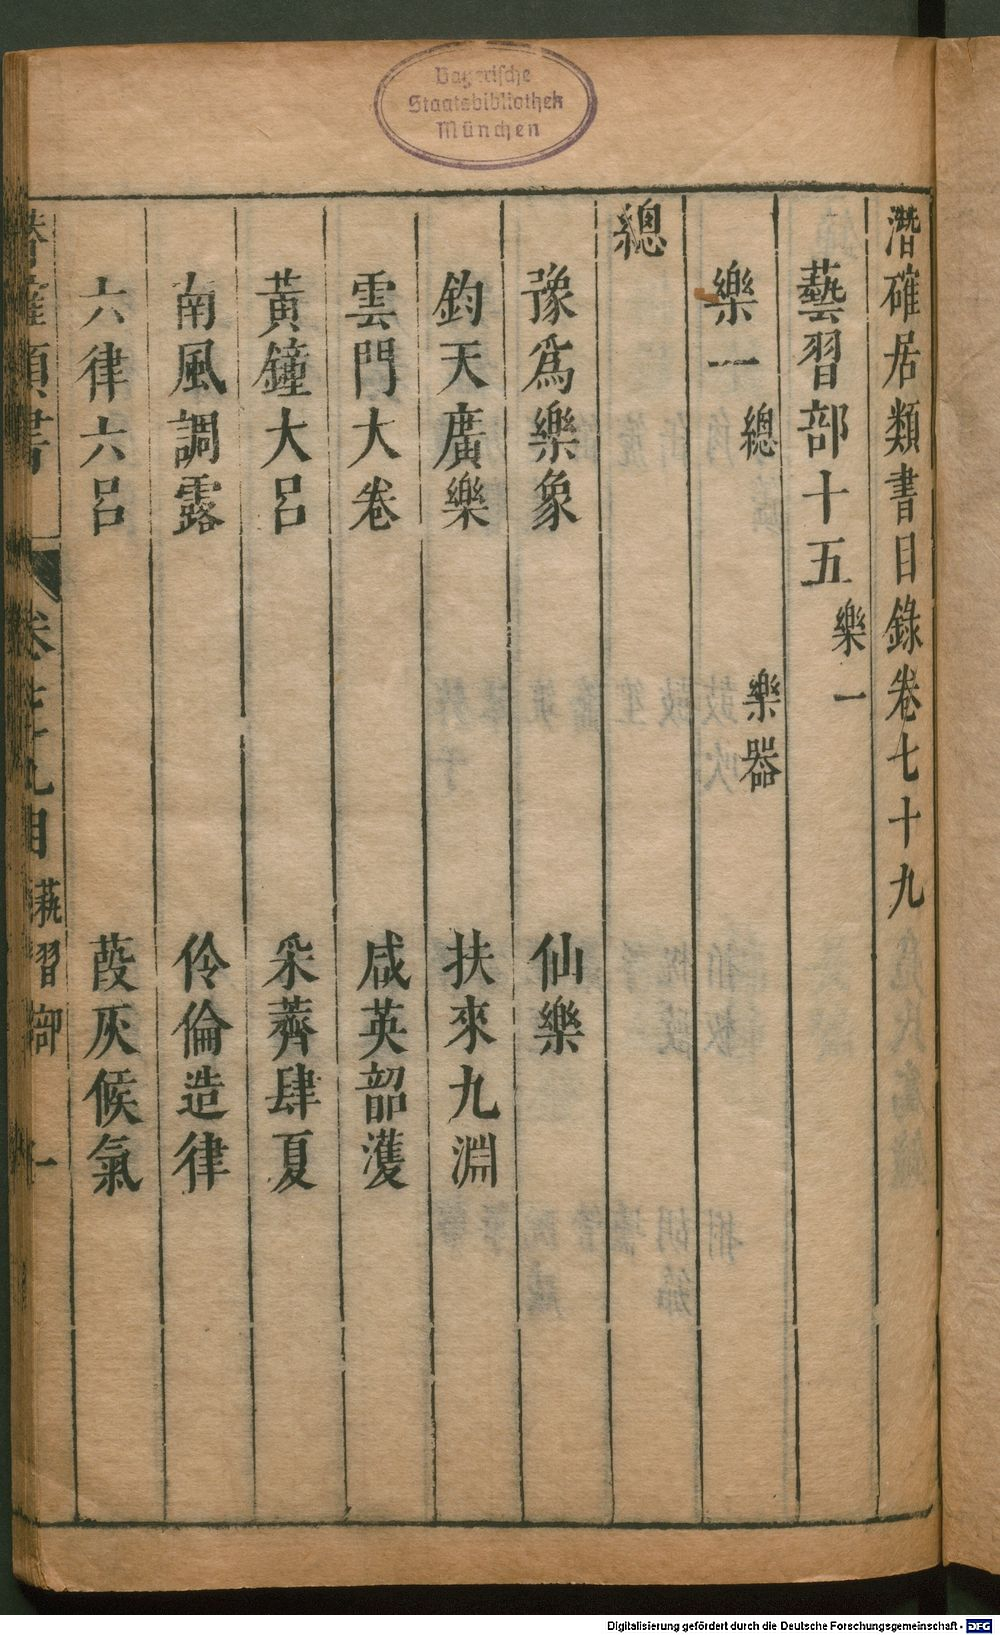 Bayerische
Staatsbibliothek
München
潛確居類書目錄卷七十九
藝習部十五 樂一
樂一 總 樂器
總
豫爲樂象 仙樂
鈞天廣樂 扶來九淵
雲門大卷 咸英韶濩
黃鐘大呂 采薺肆夏
南風調露 伶倫造律
六律六呂 葭灰候氣
卷七十九目 藝習部 一
Digitalisierung gefördert durch die Deutsche Forschungsgemeinschaft - DFG